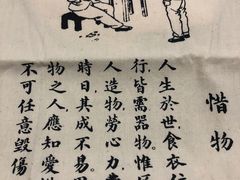 惜物
人生於世食衣住
行,皆需器物。惟
人造物勞心力費
時日,其成不易。用
物之人,應知愛惜
不可任意毀傷